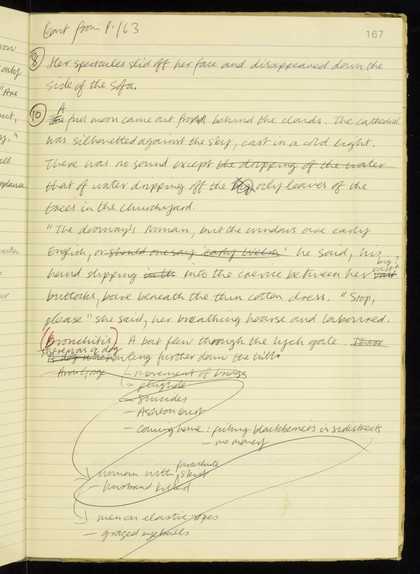 Cont from P.163
167
8 Her spectacles slid off her face and disappeared down the
side of the sofa.
10 A full moon came out from behind the clouds. The cathedral
was silhouetted against the sky, cast in a cold light.
There was no sound except the dripping of the water
that of water dripping off the oily leaves of the
trees in the churchyard.
"The doorway's Norman, but the windows are early
English, or should one say 'early Welsh'" he said, his
hand slipping into the crevice between her big
buttocks, bare beneath the thin cotton dress. "Stop,
please" she said, her breathing hoarse and laboured.
(Bronchitis) A bat flew through the lych gate.
further down the hill.
- movement of
- suicides
- coming home: putting blackberries in sidestreets
- no money
woman with parachute
- husband killed
men on elastic ropes
- grazed eyeballs